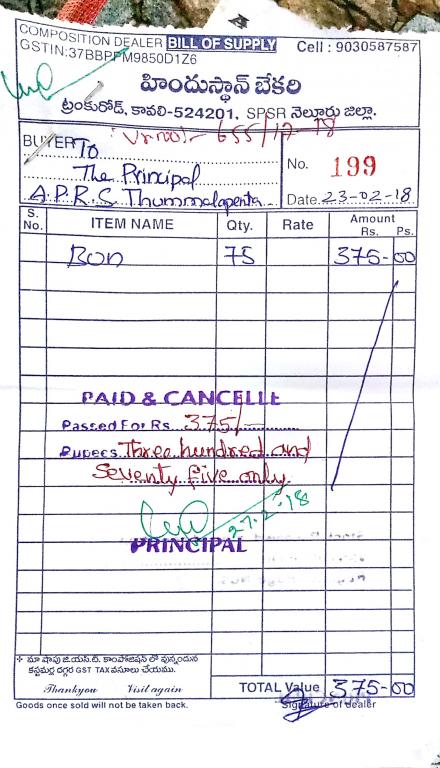 COMPOSITION DEALER BILL OF SUPPLY Cell : 9030587587
GSTIN:37BBPPM9850D1Z6
హిందుస్థాన్ బేకరి
ట్రంకురోడ్, కావలి-524201, SPSR నెల్లూరు జిల్లా.
Vr no:- 655/17-18
BUYER To
The Principal
A.P.R.S Thummalapenta
No. 199
Date. 23-02-18
S. No. ITEM NAME Qty. Rate Amount Rs. Ps.
Bon 75 375-00
PAID & CANCELLE
Passed For Rs 375/-
Rupees Three hundred and
Seventy five only.
27-2-18
PRINCIPAL
+ మా షాపు జి.యస్.టి. కాంపోజిషన్ లో వున్నందున
కస్టమర్ల దగ్గర GST TAX వసూలు చేయము.
Thankyou Visit again
TOTAL Value 375-00
Goods once sold will not be taken back. Signature of dealer